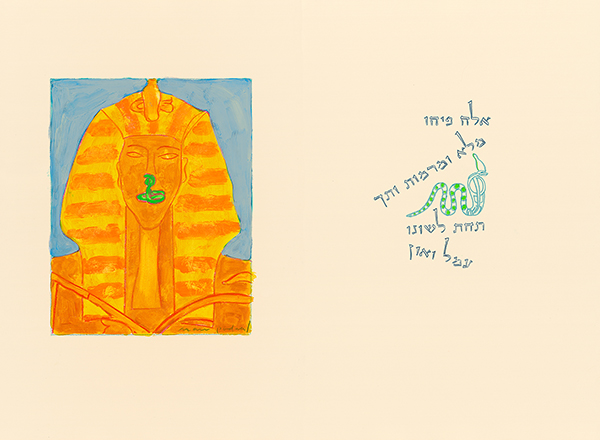 אלה פיהו
מלא ומרמות ותך
תחת לשונו
עמל ואון